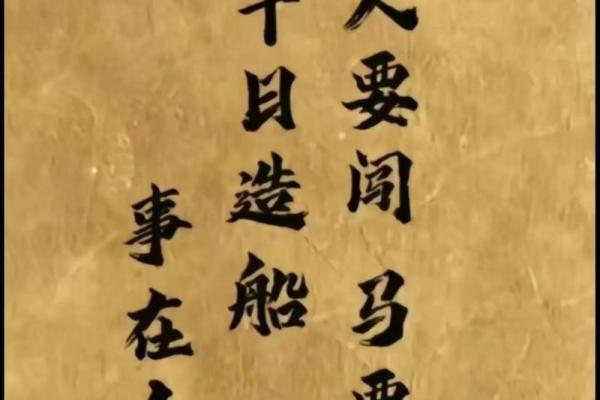 人要闯 马要
日造船
事在